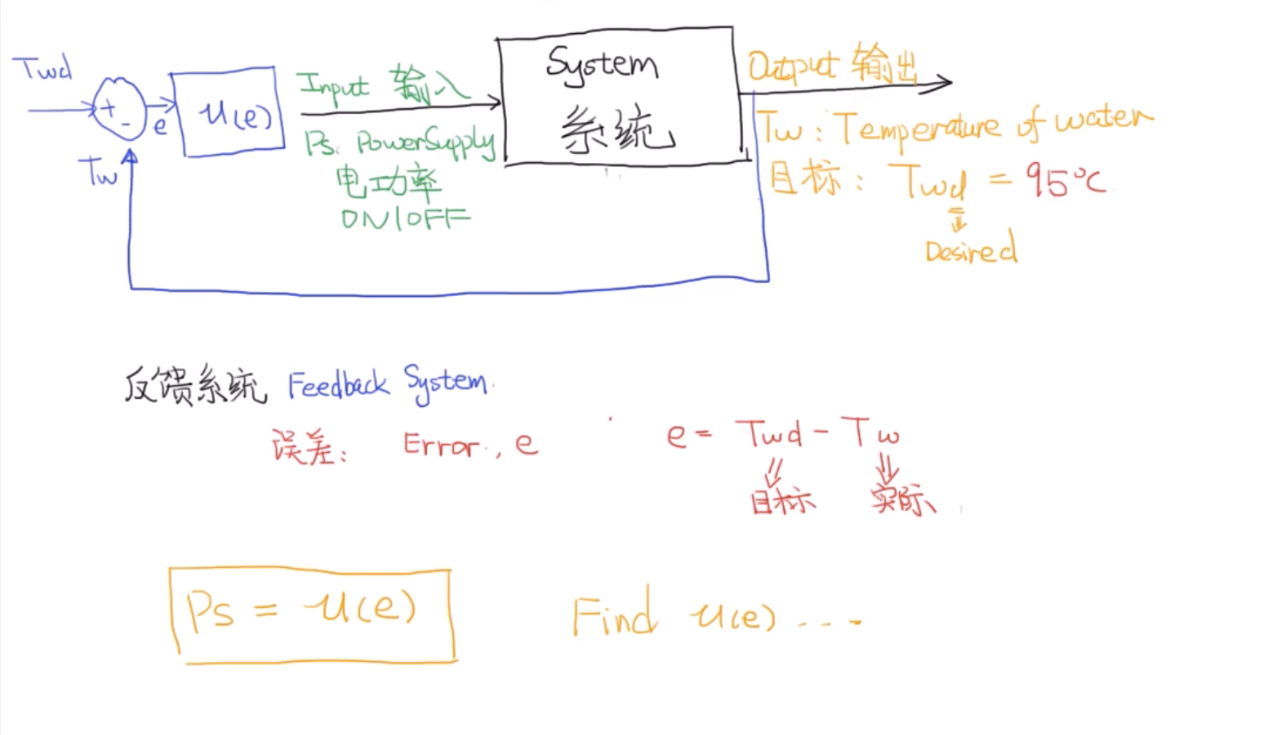 Twd
+
-
e
Tw
u(e)
Input 输入
Ps: PowerSupply
电功率
ON/OFF
System
系统
Output 输出
Tw: Temperature of water
目标: Twd = 95℃
Desired
反馈系统 Feedback System.
误差: Error, e
e = Twd - Tw
目标 实际
Ps = u(e)
Find u(e) ...